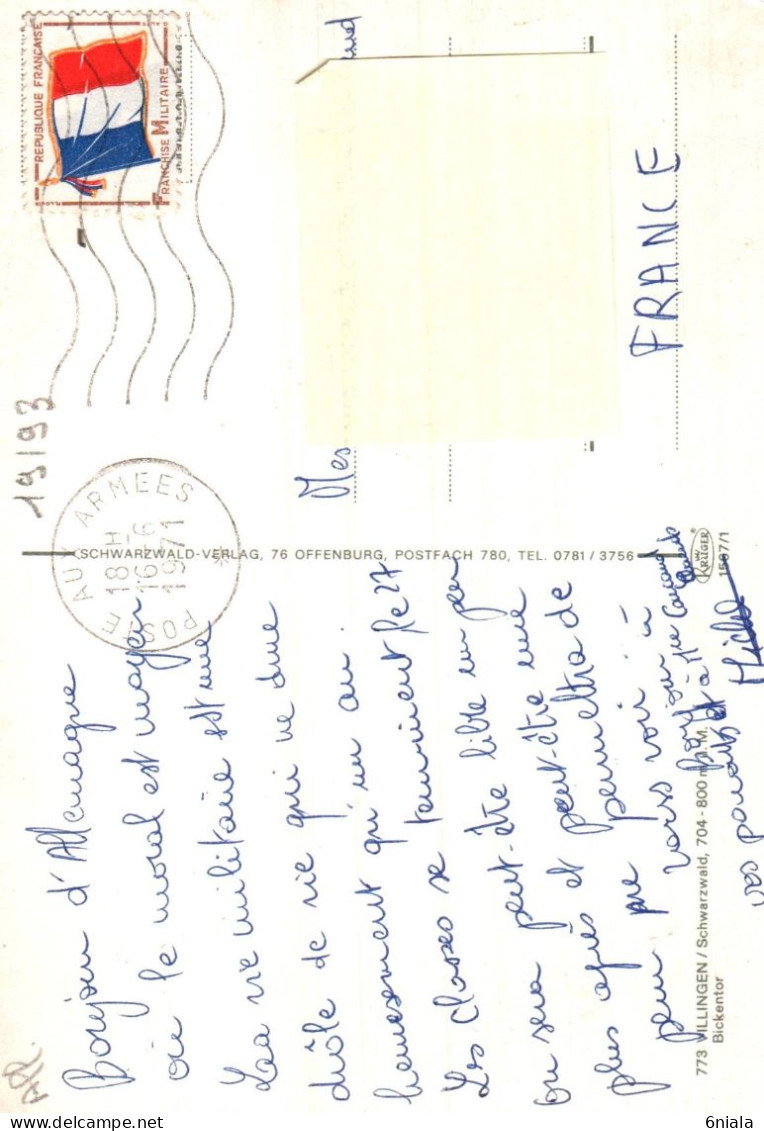 Bonjour d'Allemagne
où le moral est moyen
La vie militaire est une
drôle de vie qui ne dure
heureusement qu'un an.
Les classes se terminent le 27
on sera peut-être libre un peu
plus après et peut-être une
perm me permettra de
vous voir à
vos parents et à Mr
Michel
773 VILLINGEN / Schwarzwald, 704 - 800 m ü. M.
Bickentor
SCHWARZWALD-VERLAG, 76 OFFENBURG, POSTFACH 780, TEL. 0781 / 3756
KRÜGER
1507/1
POSTE AUX ARMEES
18 H
16 - 6
1971
REPUBLIQUE FRANÇAISE
FRANCHISE MILITAIRE
FM
Mes
FRANCE
19193
6niala